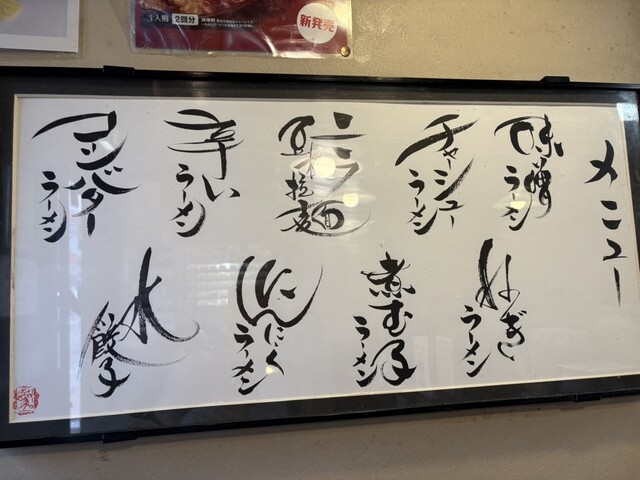 1人前 2回分
新発売
メニュー
味噌
ラーメン
チャーシュー
ラーメン
ニラ
拉麺
辛い
ラーメン
コーンバター
ラーメン
ねぎ
ラーメン
煮玉子
ラーメン
にんにく
ラーメン
水
餃子